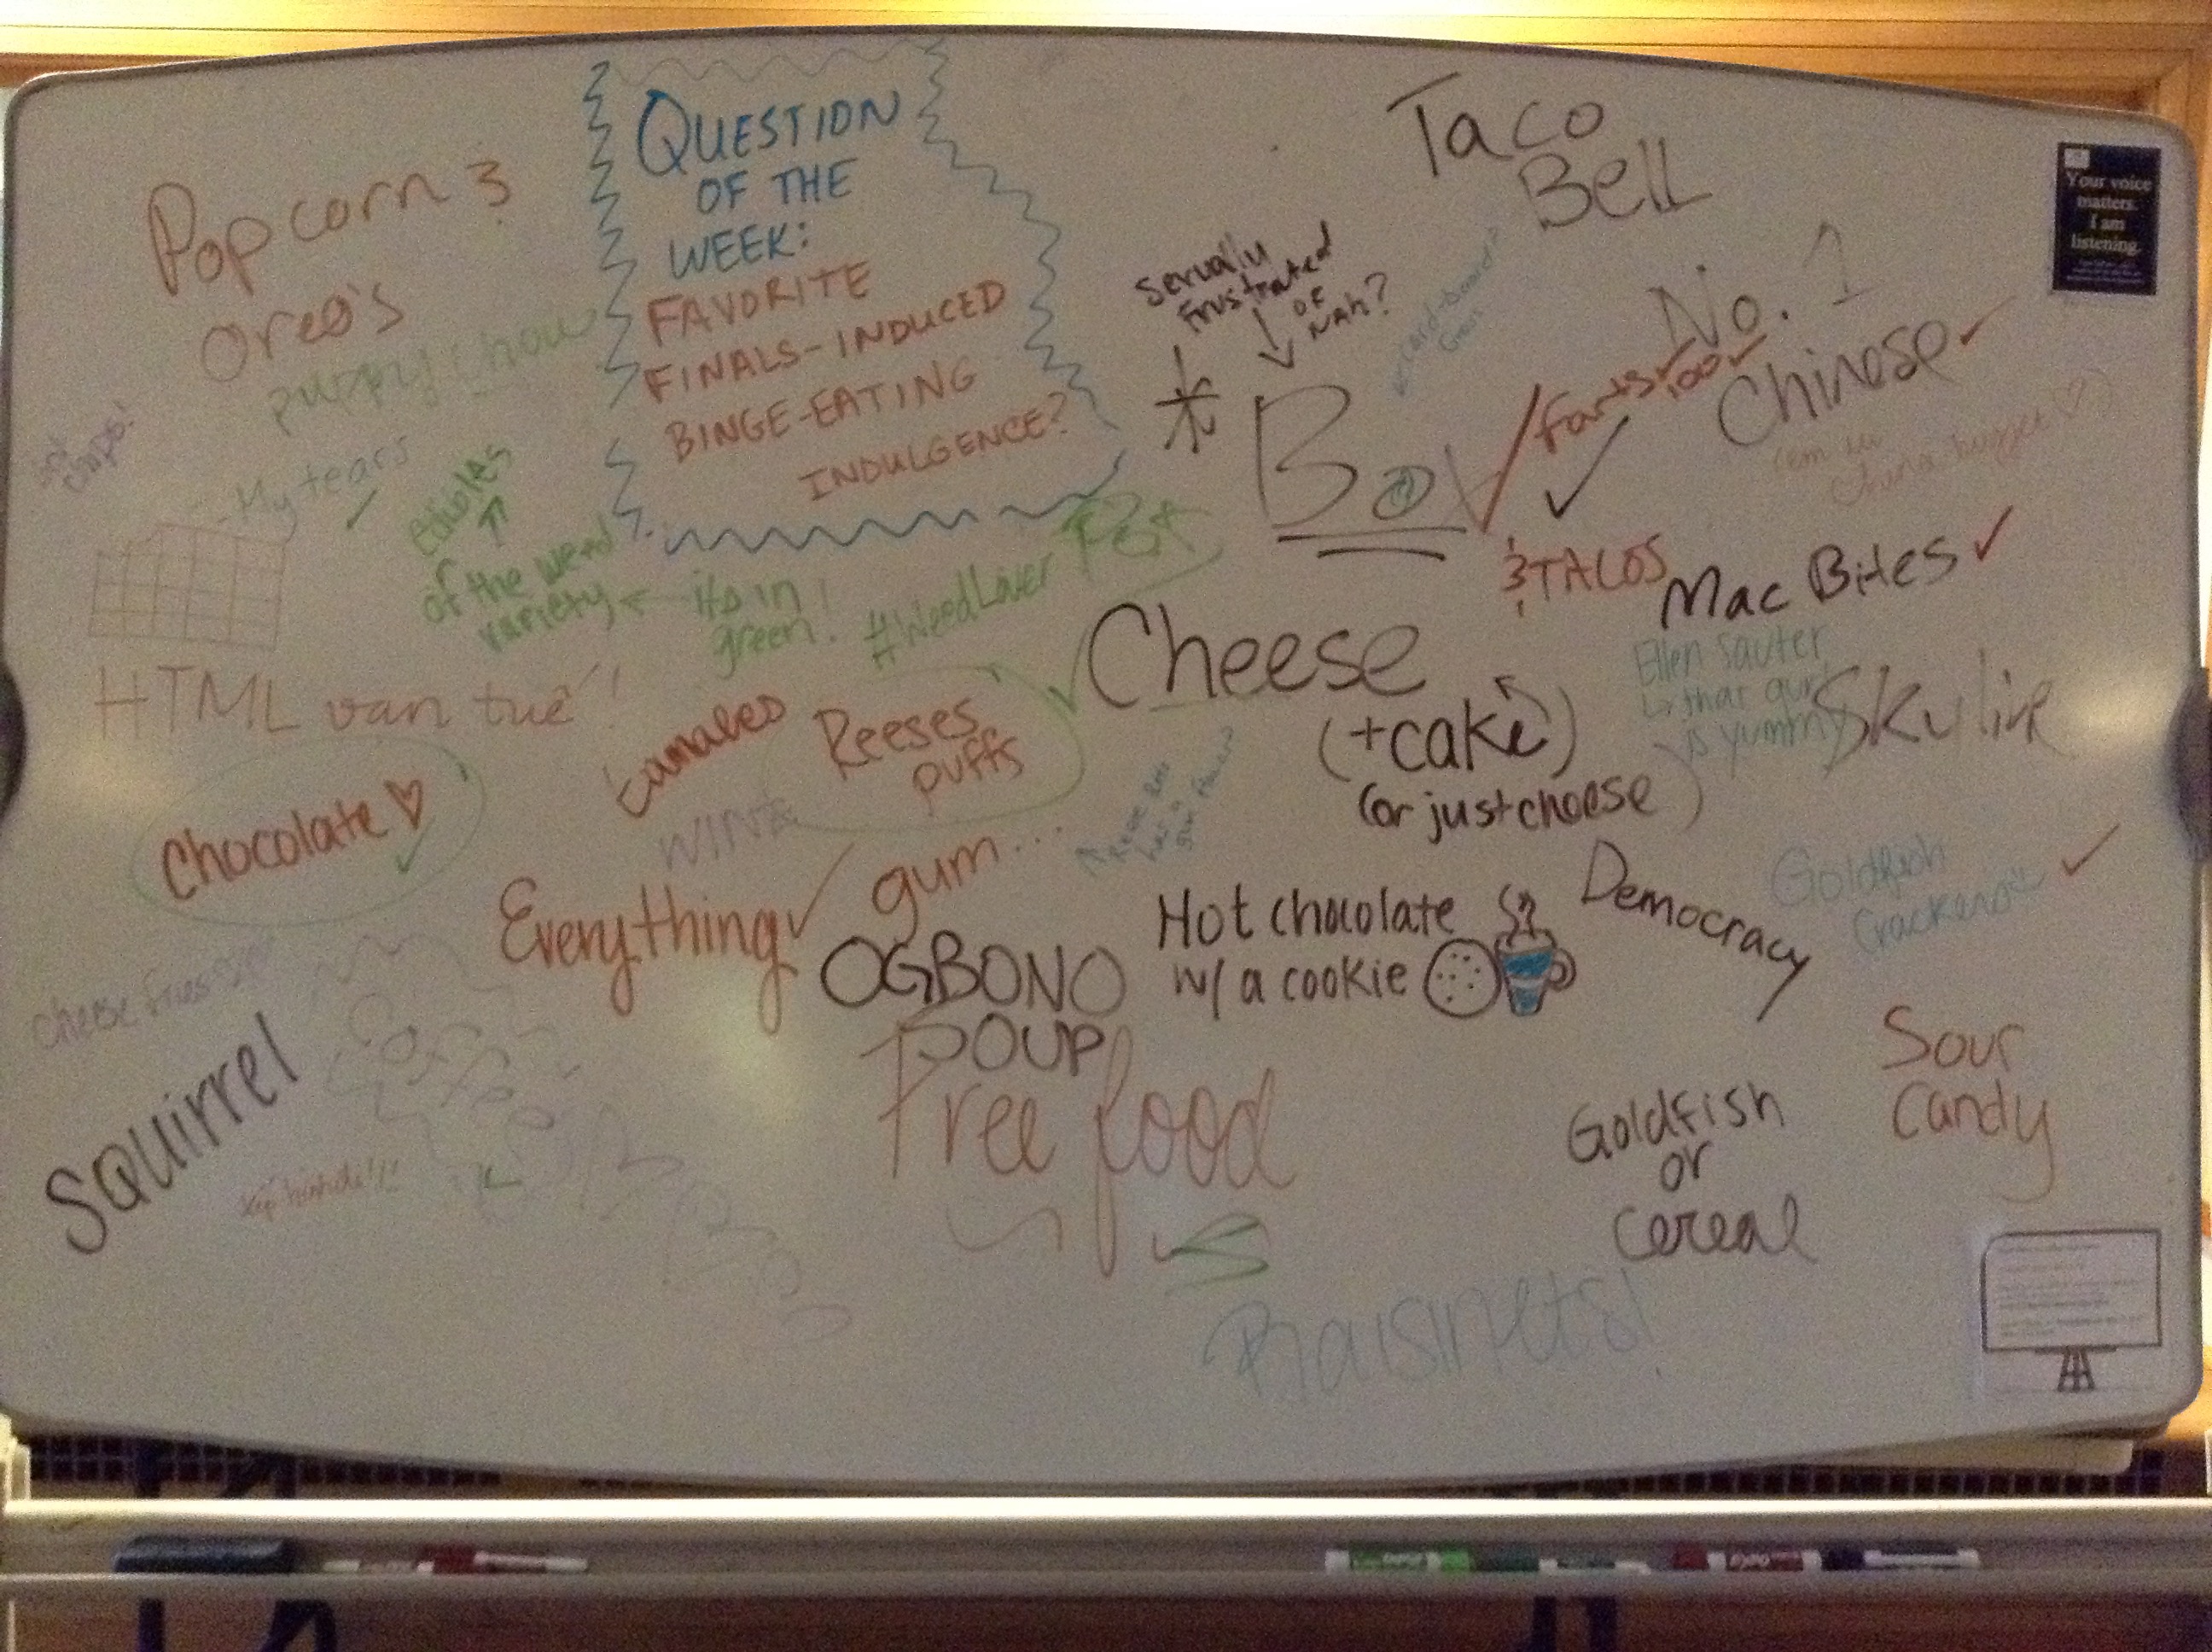 QUESTION
OF THE
WEEK:
FAVORITE
FINALS-INDUCED
BINGE-EATING
INDULGENCE?
Popcorn &
Oreo's
puppy chow
My tears
edibles
of the weed
variety
its in
green!
#WeedLover
HTML van tue!
Chocolate
tamales
WINE
Reeses
puffs
Everything
gum...
cheese fries
Squirrel
Coffee
OGBONO
SOUP
Free food
Taco
Bell
Sexually
frustrated
or
Nah?
No. 1
Chinese
Farts
too
& TACOS
Mac Bites
Cheese
(+cake)
(or just cheese)
Ellen Sauter
that gurl
is yummy
Skyline
Hot chocolate
w/ a cookie
Democracy
Goldfish
Crackers
Sour
Candy
Goldfish
or
Cereal
Raisinets!
Your voice
matters.
I am
listening.
EXPO